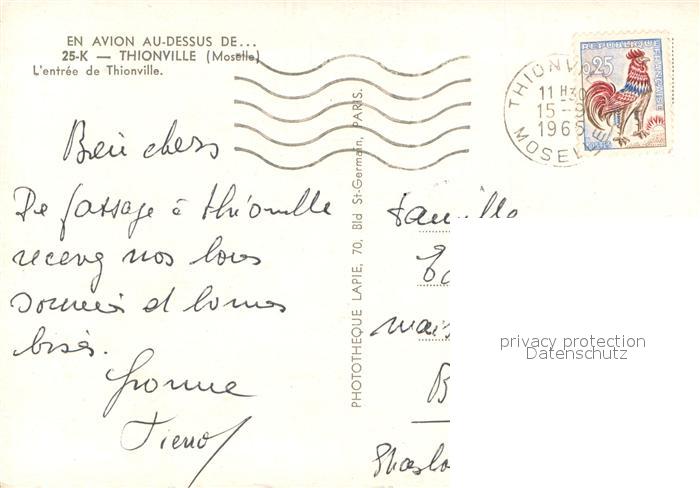 EN AVION AU-DESSUS DE...
25-K — THIONVILLE (Moselle)
L'entrée de Thionville.
RÉPUBLIQUE FRANÇAISE
0,25
POSTES
THIONVILLE
11 H30
15 -9
1965
MOSELLE
Bien chers
De passage à Thionville
recevez nos bons
et bonnes
bises.
Yvonne
Pierrot
PHOTOTHEQUE LAPIE, 70, Bld St-Germain, PARIS.
famille
mais
B
privacy protection
Datenschutz